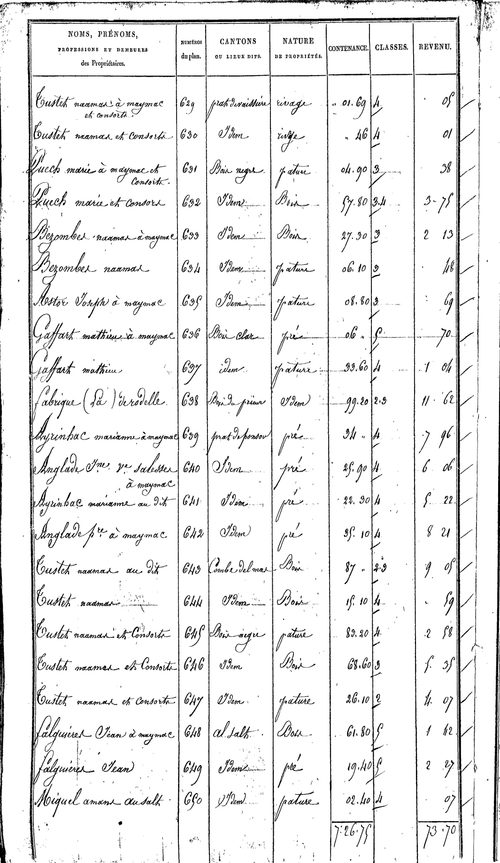 NOMS, PRÉNOMS, PROFESSIONS ET DEMEURES des Propriétaires. NUMÉROS du plan. CANTONS OU LIEUX DITS. NATURE DE PROPRIÉTÉS. CONTENANCE. CLASSES. REVENU.
Tustet naamas à maymac et consorts 629 prat de vaissiere rivage 01.69 4 05
Tustet naamas et consorts 630 Idem 46 4 01
Puech marie à maymac et Consorts 631 Bois negre pature 04.90 3 38
Puech marie et consors 632 Idem Bois 57.80 3.4 3 75
Bezombes naamas à maymac 633 Idem Bois 27.30 3 2 13
Bezombes naamas 634 Idem pature 06.10 3 48
Astor Joseph à maymac 635 Idem pature 08.80 3 69
Gaffart mathieu à maymac 636 Bois clar pré 06 5 70
Gaffart mathieu 637 idem pature 33.60 4 1 04
fabrique (La) de rodelle 638 Idem 99.20 2.3 11 62
Ayrinhac marianne à maymac 639 prat de pouson pré 34 4 7 96
Anglade Jne ve salesses à maymac 640 Idem pré 25.90 4 6 06
Ayrinhac marianne au dit 641 Idem pré 22.30 4 5 22
Anglade pre à maymac 642 Idem pré 35.10 4 8 21
Tustet naamas au dit 643 Combe del mas Bois 87 2.3 9 05
Tustet naamas 644 Idem Bois 15.10 4 59
Tustet naamas et Consorts 645 Bois aigre pature 83.20 4 2 58
Tustet naamas et Consorts 646 Idem Bois 68.60 3 5 35
Tustet naamas et Consorts 647 Idem pature 26.10 2 4 07
falguières Jean à maymac 648 al salt Bois 61.80 5 1 82
falguières Jean 649 Idem pré 19.40 5 2 27
Miquel amans au salt 650 Idem pature 02.40 4 07
7.26.75 73.70